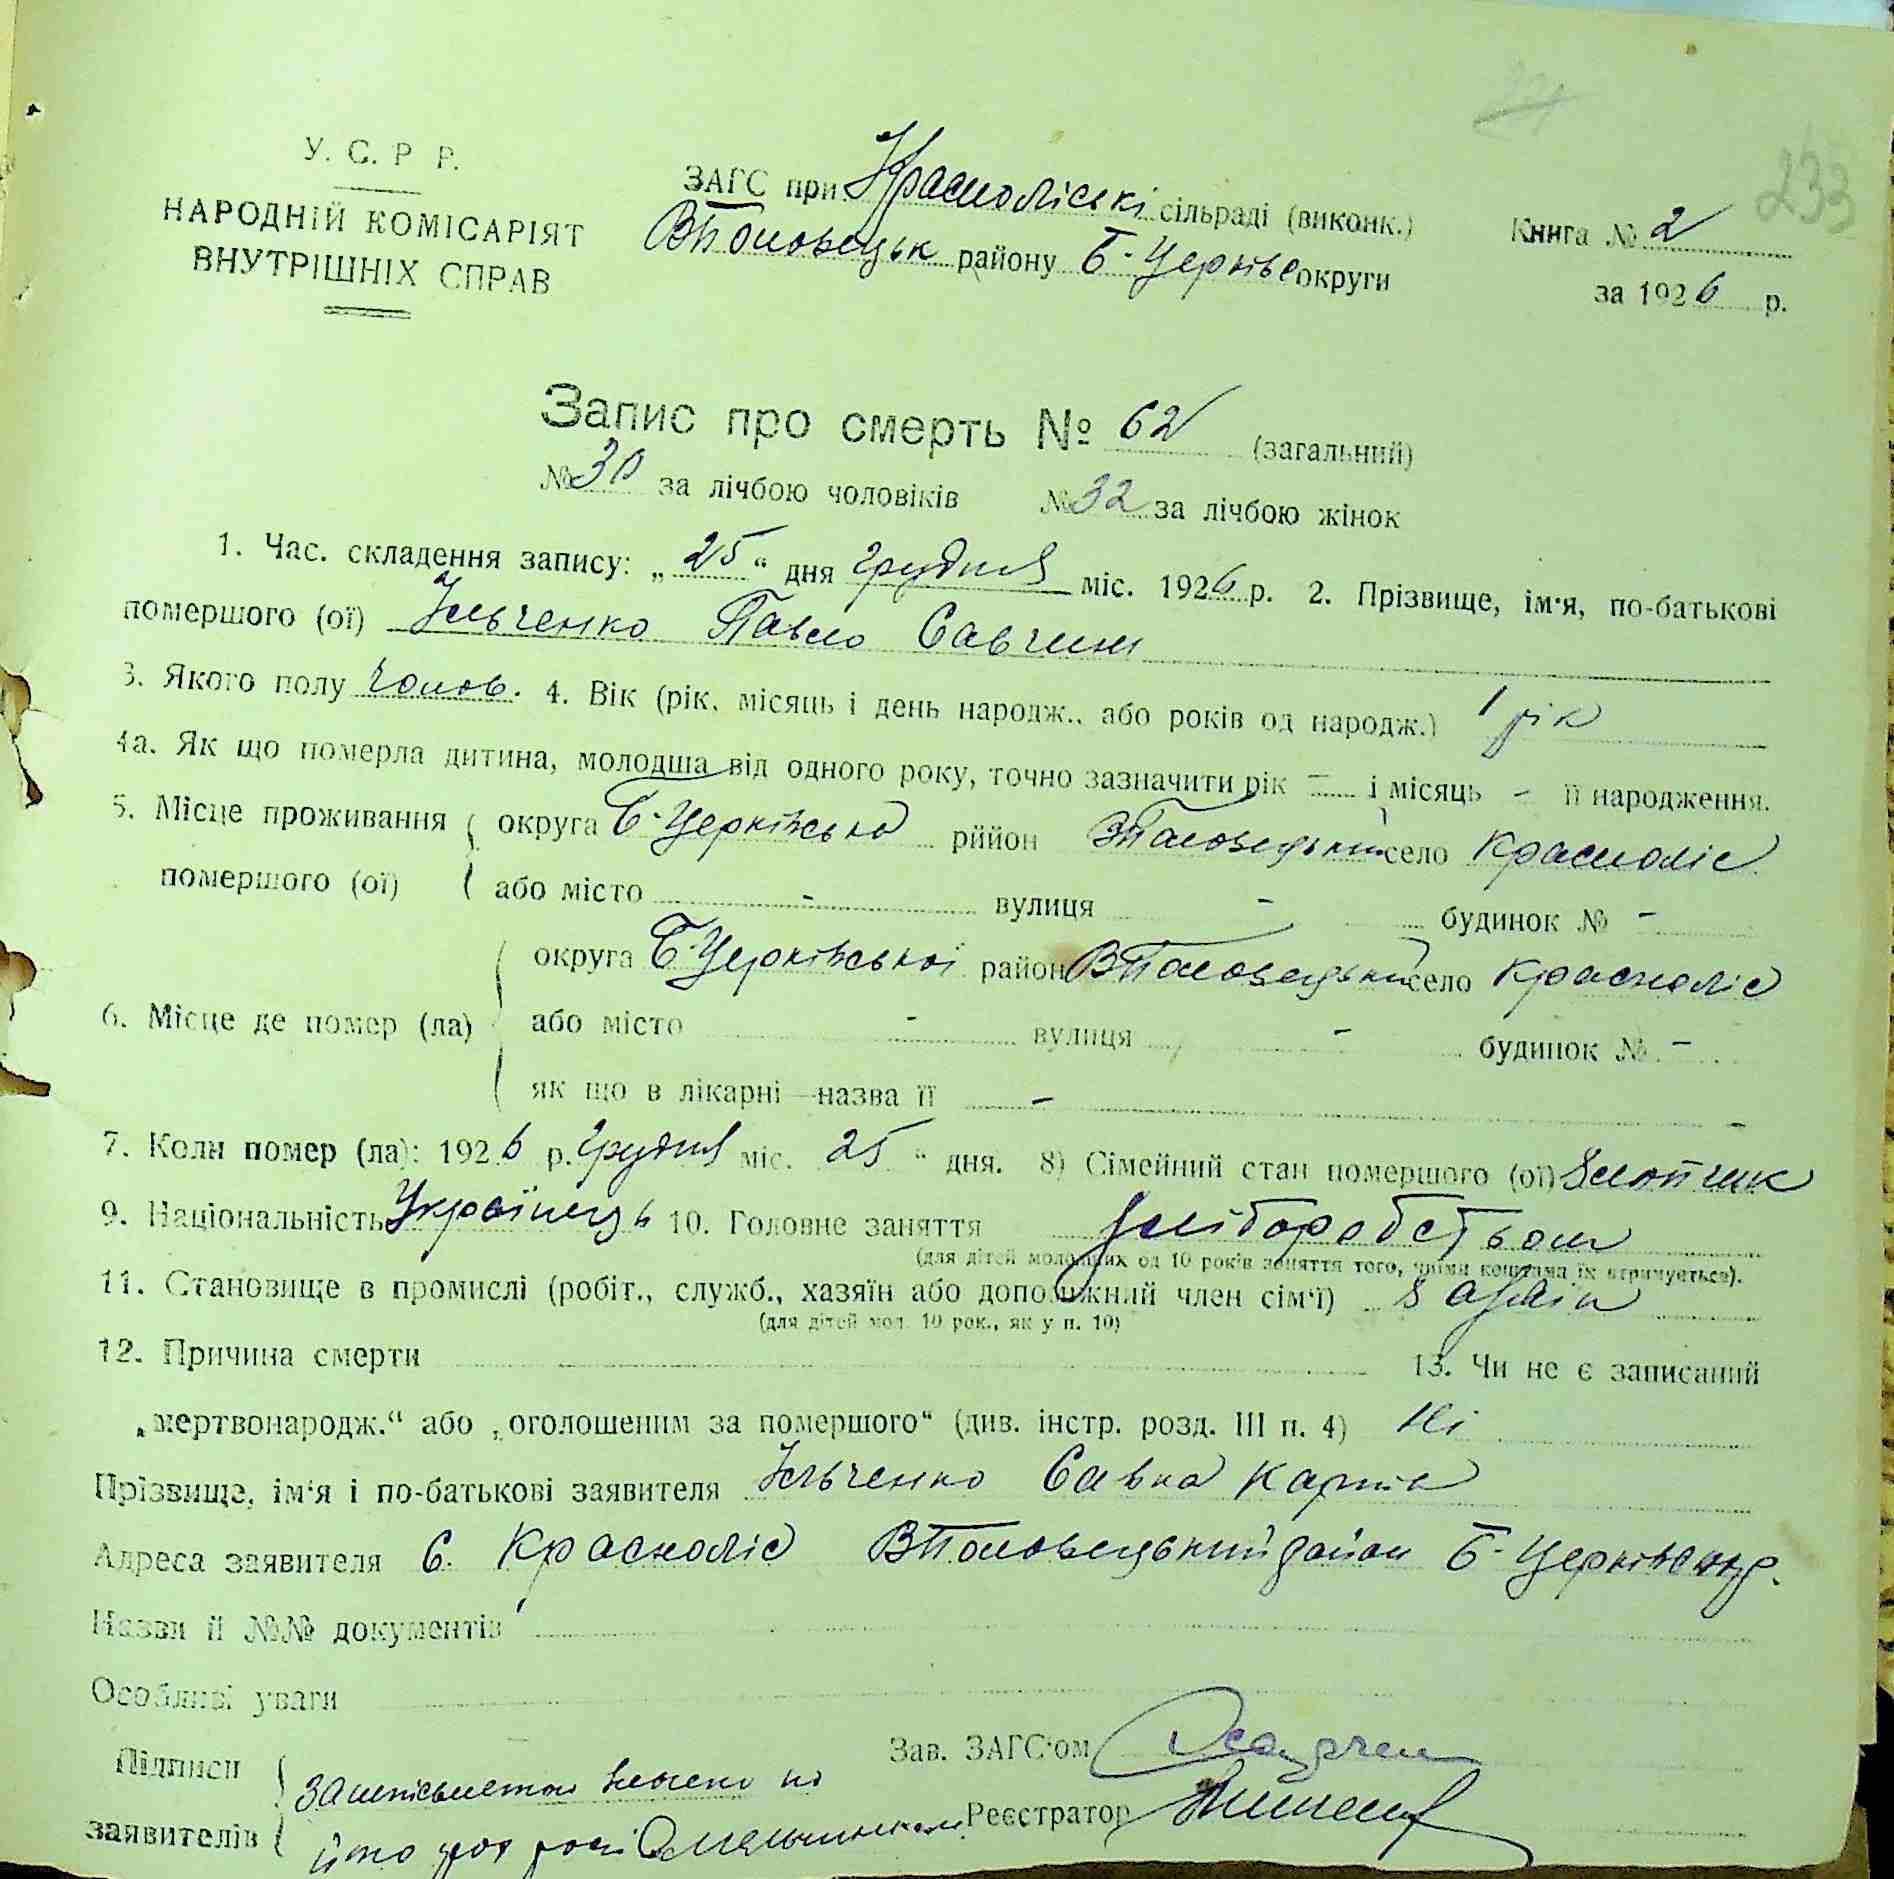 233
У. С. Р Р.
НАРОДНІЙ КОМІСАРІЯТ
ВНУТРІШНІХ СПРАВ
ЗАГС при Красноліські сільраді (виконк.)
ВПоловецьк району Б-Церківс округи
Книга № 2
за 1926 р.
Запис про смерть № 62 (загальний)
№ 30 за лічбою чоловіків № 32 за лічбою жінок
1. Час. складення запису: „25“ дня грудня міс. 1926 р. 2. Прізвище, ім'я, по-батькові
помершого (ої) Ільченко Павло Савчин
3. Якого полу чолов. 4. Вік (рік, місяць і день народж., або років од народж.) 1 рік
4а. Як що померла дитина, молодша від одного року, точно зазначити рік — і місяць - її народження.
5. Місце проживання округа Б-Церківська рййон ВПоловецький село Красноліс
помершого (ої) або місто - вулиця - будинок № -
округа Б-Церківської район ВПоловецький село Красноліс
6. Місце де помер (ла) або місто - вулиця - будинок № -
як що в лікарні—назва її -
7. Коли помер (ла): 1926 р. грудня міс. 25 “ дня. 8) Сімейний стан помершого (ої) хлопчик
9. Національність Українець 10. Головне заняття хліборобством
(для дітей молодших од 10 років заняття того, чиїми коштами їх утримується).
11. Становище в промислі (робіт., служб., хазяїн або допоміжний член сім'ї) хазяін
(для дітей мол. 10 рок., як у п. 10)
12. Причина смерти 13. Чи не є записаний
„мертвонародж.“ або „оголошеним за помершого“ (див. інстр. розд. III п. 4) Ні
Прізвище, ім'я і по-батькові заявителя Ільченко Савка Карпів
Адреса заявителя С. Красноліс ВПоловецький район Б-Церківс окр.
Назви й №№ документів
Особливі уваги
Зав. ЗАГС'ом
Підписи
Реєстратор
заявителів